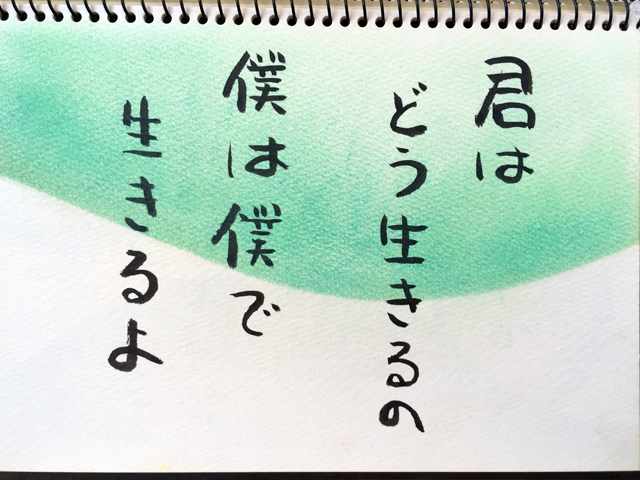 君は
どう生きるの
僕は僕で
生きるよ